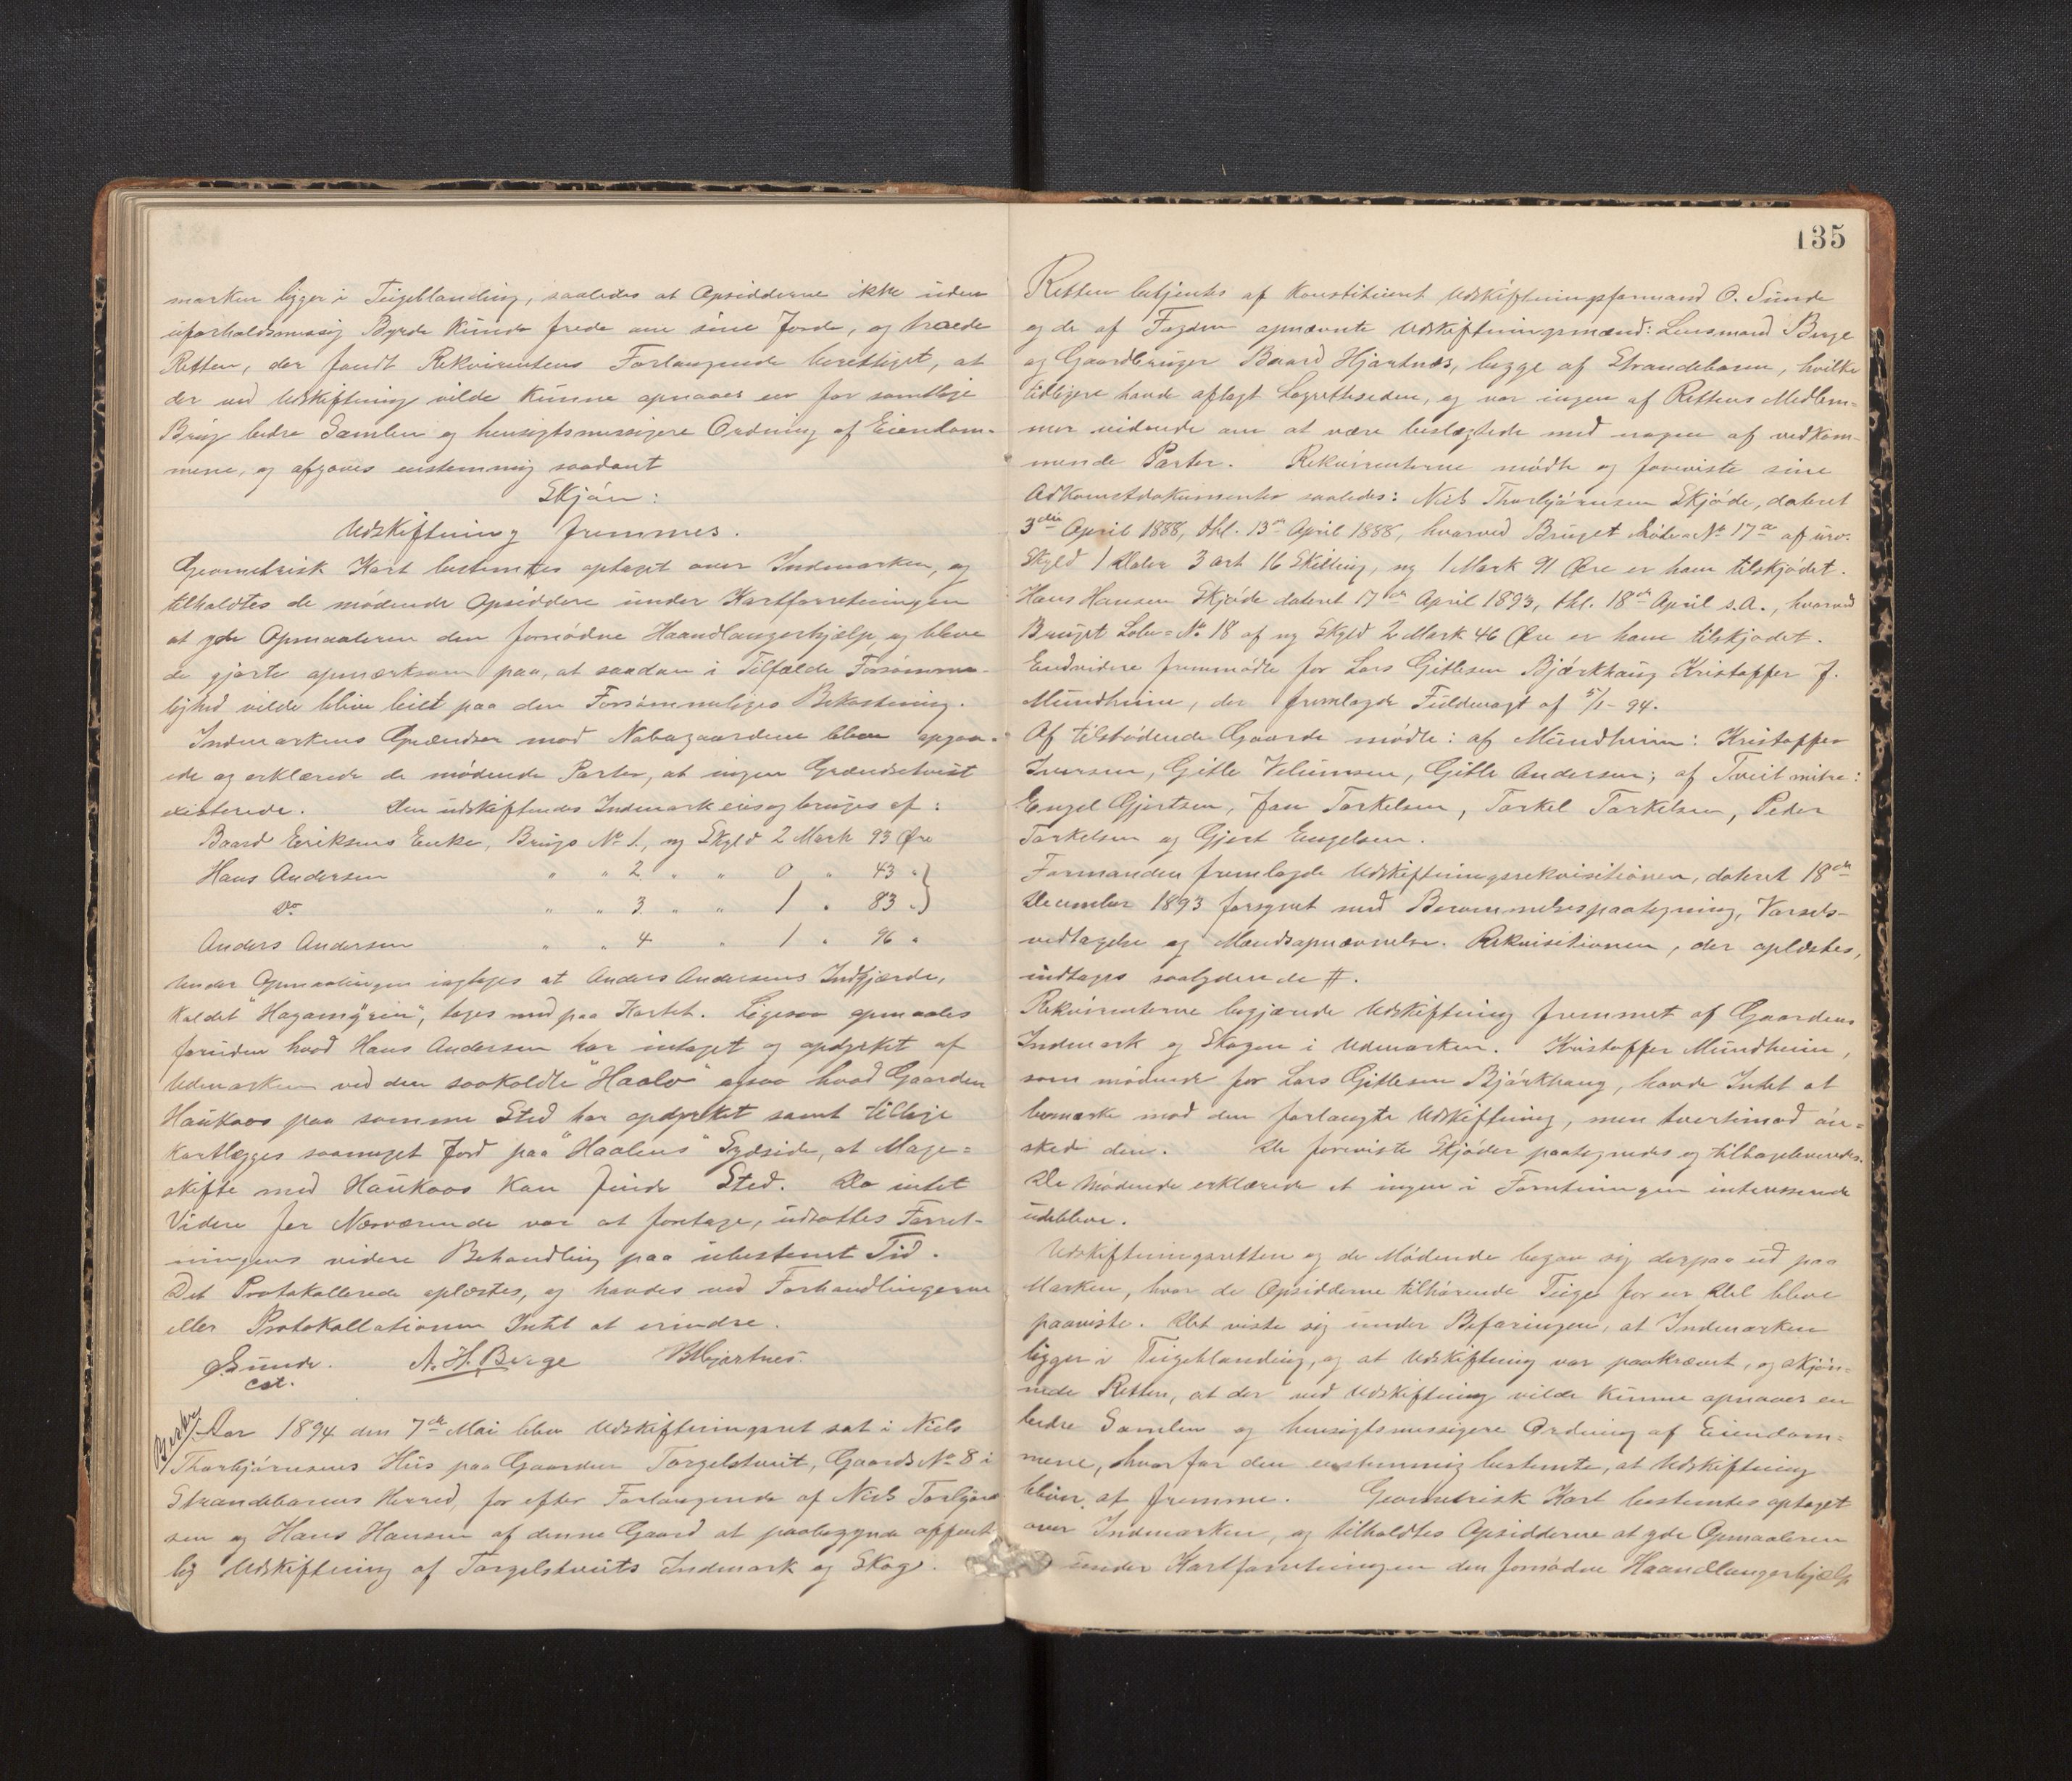 marken ligger i Teigeblanding, saaledes at Opsidderne ikke uden
uforholdsmæssig Byrde kunde frede om sine Jorde, og traadte
Retten, der fandt Rekvirentens Forlangende berettiget, at
der ved Udskiftning vilde kunne opnaaes en for samtlige
Brug bedre Samlen og hensigtsmæssigere Ordning af Eiendom-
mene, og afgaves enstemmig saadant
Skjøn:
Udskiftning fremmes.
Geometrisk Kart bestemtes optaget over Indmarken, og
tilholdtes de mødende Opsiddere under Kartforretningen
at yde Opmaaleren den fornødne Haandlangerhjælp og bleve
de gjorte opmærksom paa, at saadan i Tilfælde Forsømme-
lighed vilde blive leiet paa den Forsømmeliges Bekostning.
Indmarkens Grændser mod Nabogaardene bleve opgaa-
ede og erklærede de mødende Parter, at ingen Grændsetvist
existerede. Den udskiftendes Indmark eies og bruges af:
Baard Eriksens Enke, Brugs No 1, ny Skyld 2 Mark 93 Øre
Hans Andersen " " 2 " " 0 " 43 "
Do " " 3 " " 1 " 83 "
Anders Andersen " " 4 " 1 " 96 "
Under Opmaalingen iagtages at Anders Andersens Indgjærde,
kaldet "Hagamyrin", tages med paa Kartet. Ligesaa opmaales
foruden hvad Hans Andersen har intaget og opdyrket af
Udmarken ved den saakaldte "Haalo" ogsaa hvad Gaarden
Haukaas paa samme Sted har opdyrket samt tillige
kartlægges saameget Jord paa "Haalens" Sydside, at Mage-
skifte med Haukaas kan finde Sted. Da intet
Videre for Nærværende var at foretage, udsattes Forret-
ningens videre Behandling paa ubestemt Tid.
Det Protokollerede oplæstes, og havdes ved Forhandlingerne
eller Protokollationen Intet at erindre.
O. Sunde. A. H. Berge B Hjartnes.
cst.
Aar 1894 den 7de Mai blev Udskiftningsret sat i Niels
Thorbjørnsens Hus paa Gaarden Torgelstveit, Gaards No 8 i
Strandebarms Herred, for efter Forlangende af Niels Torbjørn
sen og Hans Hansen af denne Gaard at paabegynde offent
lig Udskiftning af Torgelstveits Indmark og Skog.
135
Retten betjentes af konstitueret Udskiftningsformand O. Sunde
og de af Fogden opnævnte Udskiftningsmænd: Lensmand Berge
og Gaardbruger Baard Hjartnes, begge af Strandebarm, hvilke
tidligere havde aflagt Lagretteseden, og var ingen af Rettens Medlem-
mer vidende om at være beslægtede med nogen af vedkom-
mende Parter. Rekvirenterne mødte og foreviste sine
Adkomstdokumenter saaledes: Niels Thorbjørnsen Skjøde, dateret
3die April 1888, thl. 13de April 1888, hvorved Bruget Løbe-No 17a af urev.
Skyld 1 Daler 3 ort 16 Skilling, ny 1 Mark 91 Øre er ham tilskjødet.
Hans Hansen Skjøde dateret 17de April 1893, thl. 18de April s.A., hvorved
Bruget Løbe-No 18 af ny Skyld 2 Mark 46 Øre er ham tilskjødet.
Endvidere fremmødte for Lars Gitlesen Bjørkhaug Kristoffer J.
Mundheim, der fremlagde Fuldmagt af 5/1-94.
Af tilstødende Gaarde mødte: af Mundheim: Kristoffer
Iversen, Gitle Andersen; af Tveit nitre:
Engel Gjertsen, Jan Torkelsen, Torkel Torkelsen, Peder
Torkelsen og Gjert Engelsen.
Formanden fremlagde Udskiftningsrekvisitionen, dateret 18de
December 1893 forsynet med Berammelsespaategning, Varsels-
vedtagelse og Mandsopnævnelse. Rekvisitionen, der oplæstes,
indtages saalydende #.
Rekvirenterne begjærede Udskiftning fremmet af Gaardens
Indmark og Skogen i Udmarken. Kristoffer Mundheim,
som mødende for Lars Gitlesen Bjørkhaug, havde Intet at
bemærke mod den forlangte Udskiftning, men tvertimod øn-
skede den. De foreviste Skjøder paategnedes og tilbageleveredes.
De Mødende erklærede at ingen i Forretningen interesserede
udebleve.
Udskiftningsretten og de Mødende begav sig derpaa ud paa
Marken, hvor de Opsidderne tilhørende Teige for en Del bleve
paaviste. Det viste sig under Befaringen, at Indmarken
ligger i Teigeblanding, og at Udskiftning var paakrævet, og skjøn-
nede Retten, at der ved Udskiftning vilde kunne opnaaes en
bedre Samlen og hensigtsmæssigere Ordning af Eiendom-
mene, hvorfor den enstemmig bestemte, at Udskiftning
bliver at fremme. Geometrisk Kart bestemtes optaget
over Indmarken, og tilholdtes Opsidderne at yde Opmaaleren
under Kartforretningen den fornødne Haandlangerhjælp